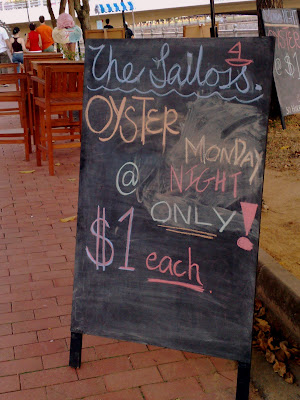 The Sailors.
OYSTER
MONDAY
@ NIGHT
ONLY!
$1 each